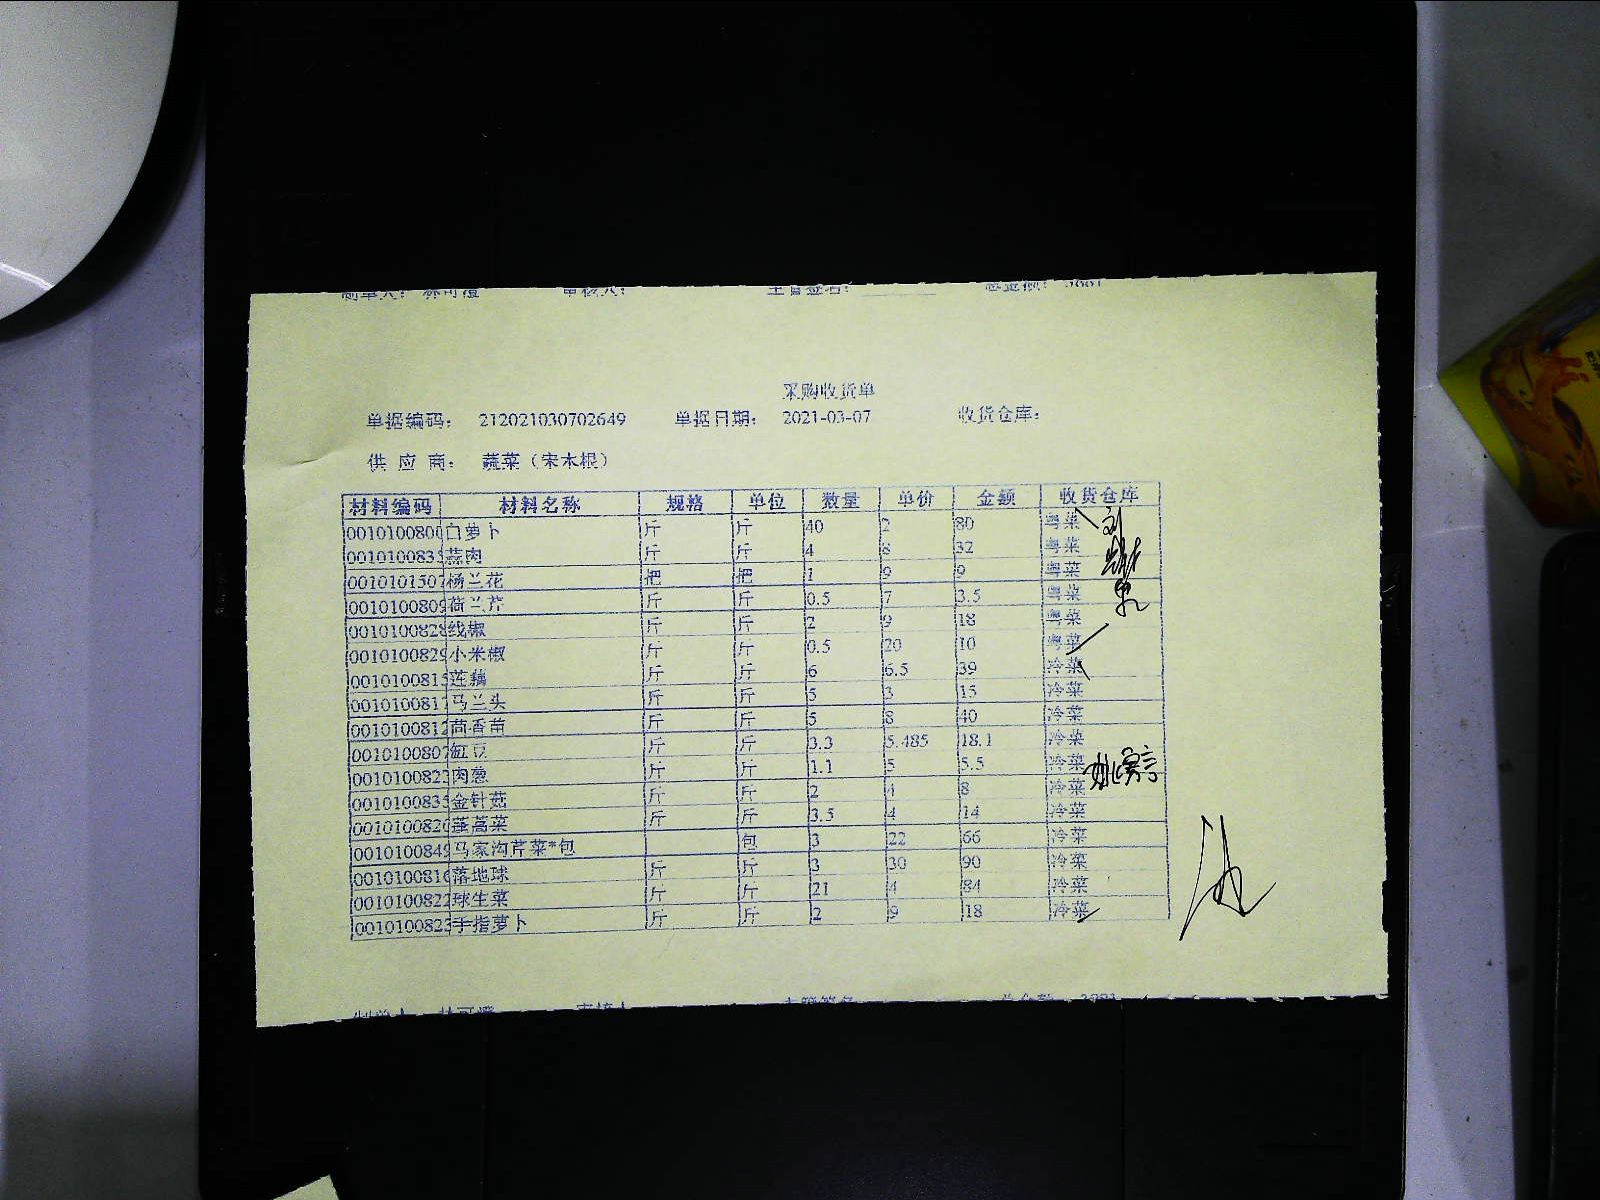 采购收货单
单据编码： 212021030702649 单据日期： 2021-03-07 收货仓库：
供 应 商： 蔬菜（宋本根）
材料编码 材料名称 规格 单位 数量 单价 金额 收货仓库
0010100800 白萝卜 斤 斤 40 2 80 粤菜
0010100835 蒜肉 斤 斤 4 8 32 粤菜
0010101507 杨兰花 把 把 1 9 9 粤菜
0010100809 荷兰芹 斤 斤 0.5 7 3.5 粤菜
0010100828 线椒 斤 斤 2 9 18 粤菜
0010100829 小米椒 斤 斤 0.5 20 10 粤菜
0010100815 莲藕 斤 斤 6 6.5 39 冷菜
0010100817 马兰头 斤 斤 5 3 15 冷菜
0010100812 茴香苗 斤 斤 5 8 40 冷菜
0010100807 豇豆 斤 斤 3.3 5.485 18.1 冷菜
0010100823 肉葱 斤 斤 1.1 5 5.5 冷菜
0010100835 金针菇 斤 斤 2 4 8 冷菜
0010100820 蓬蒿菜 斤 斤 3.5 4 14 冷菜
0010100849 马家沟芹菜*包 包 3 22 66 冷菜
0010100816 落地球 斤 斤 3 30 90 冷菜
0010100822 球生菜 斤 斤 21 4 84 冷菜
0010100823 手指萝卜 斤 斤 2 9 18 冷菜